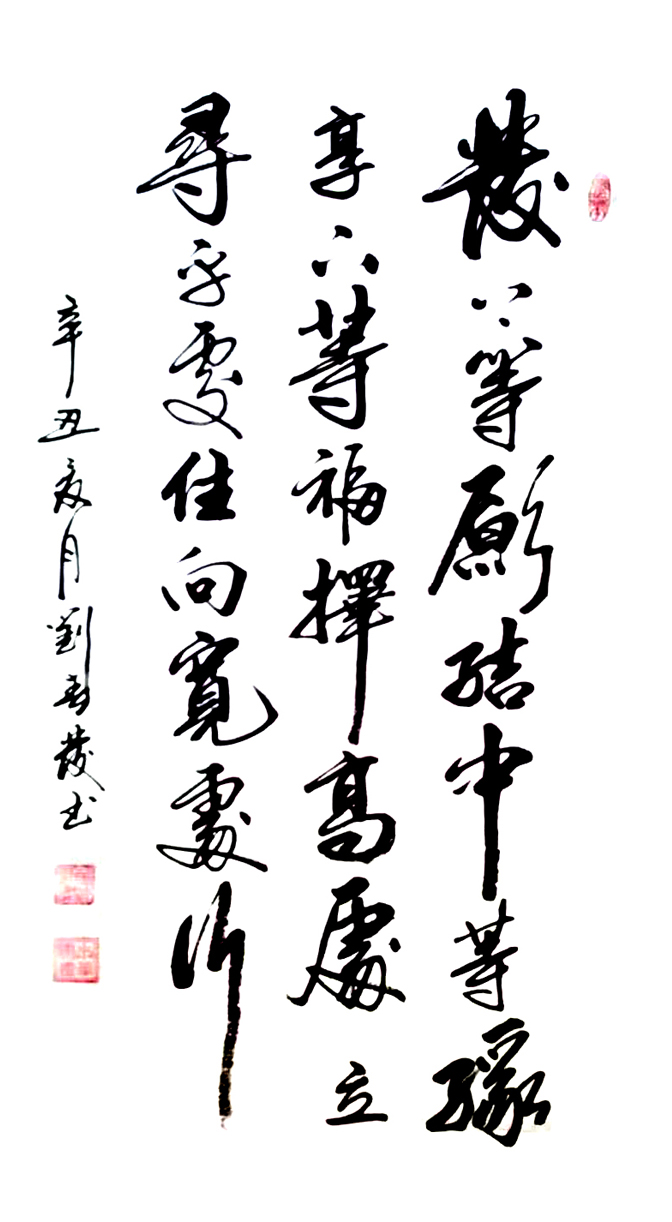 發上等願結中等緣
享下等福擇高處立
尋平處住向寬處行
辛丑夏月劉發书